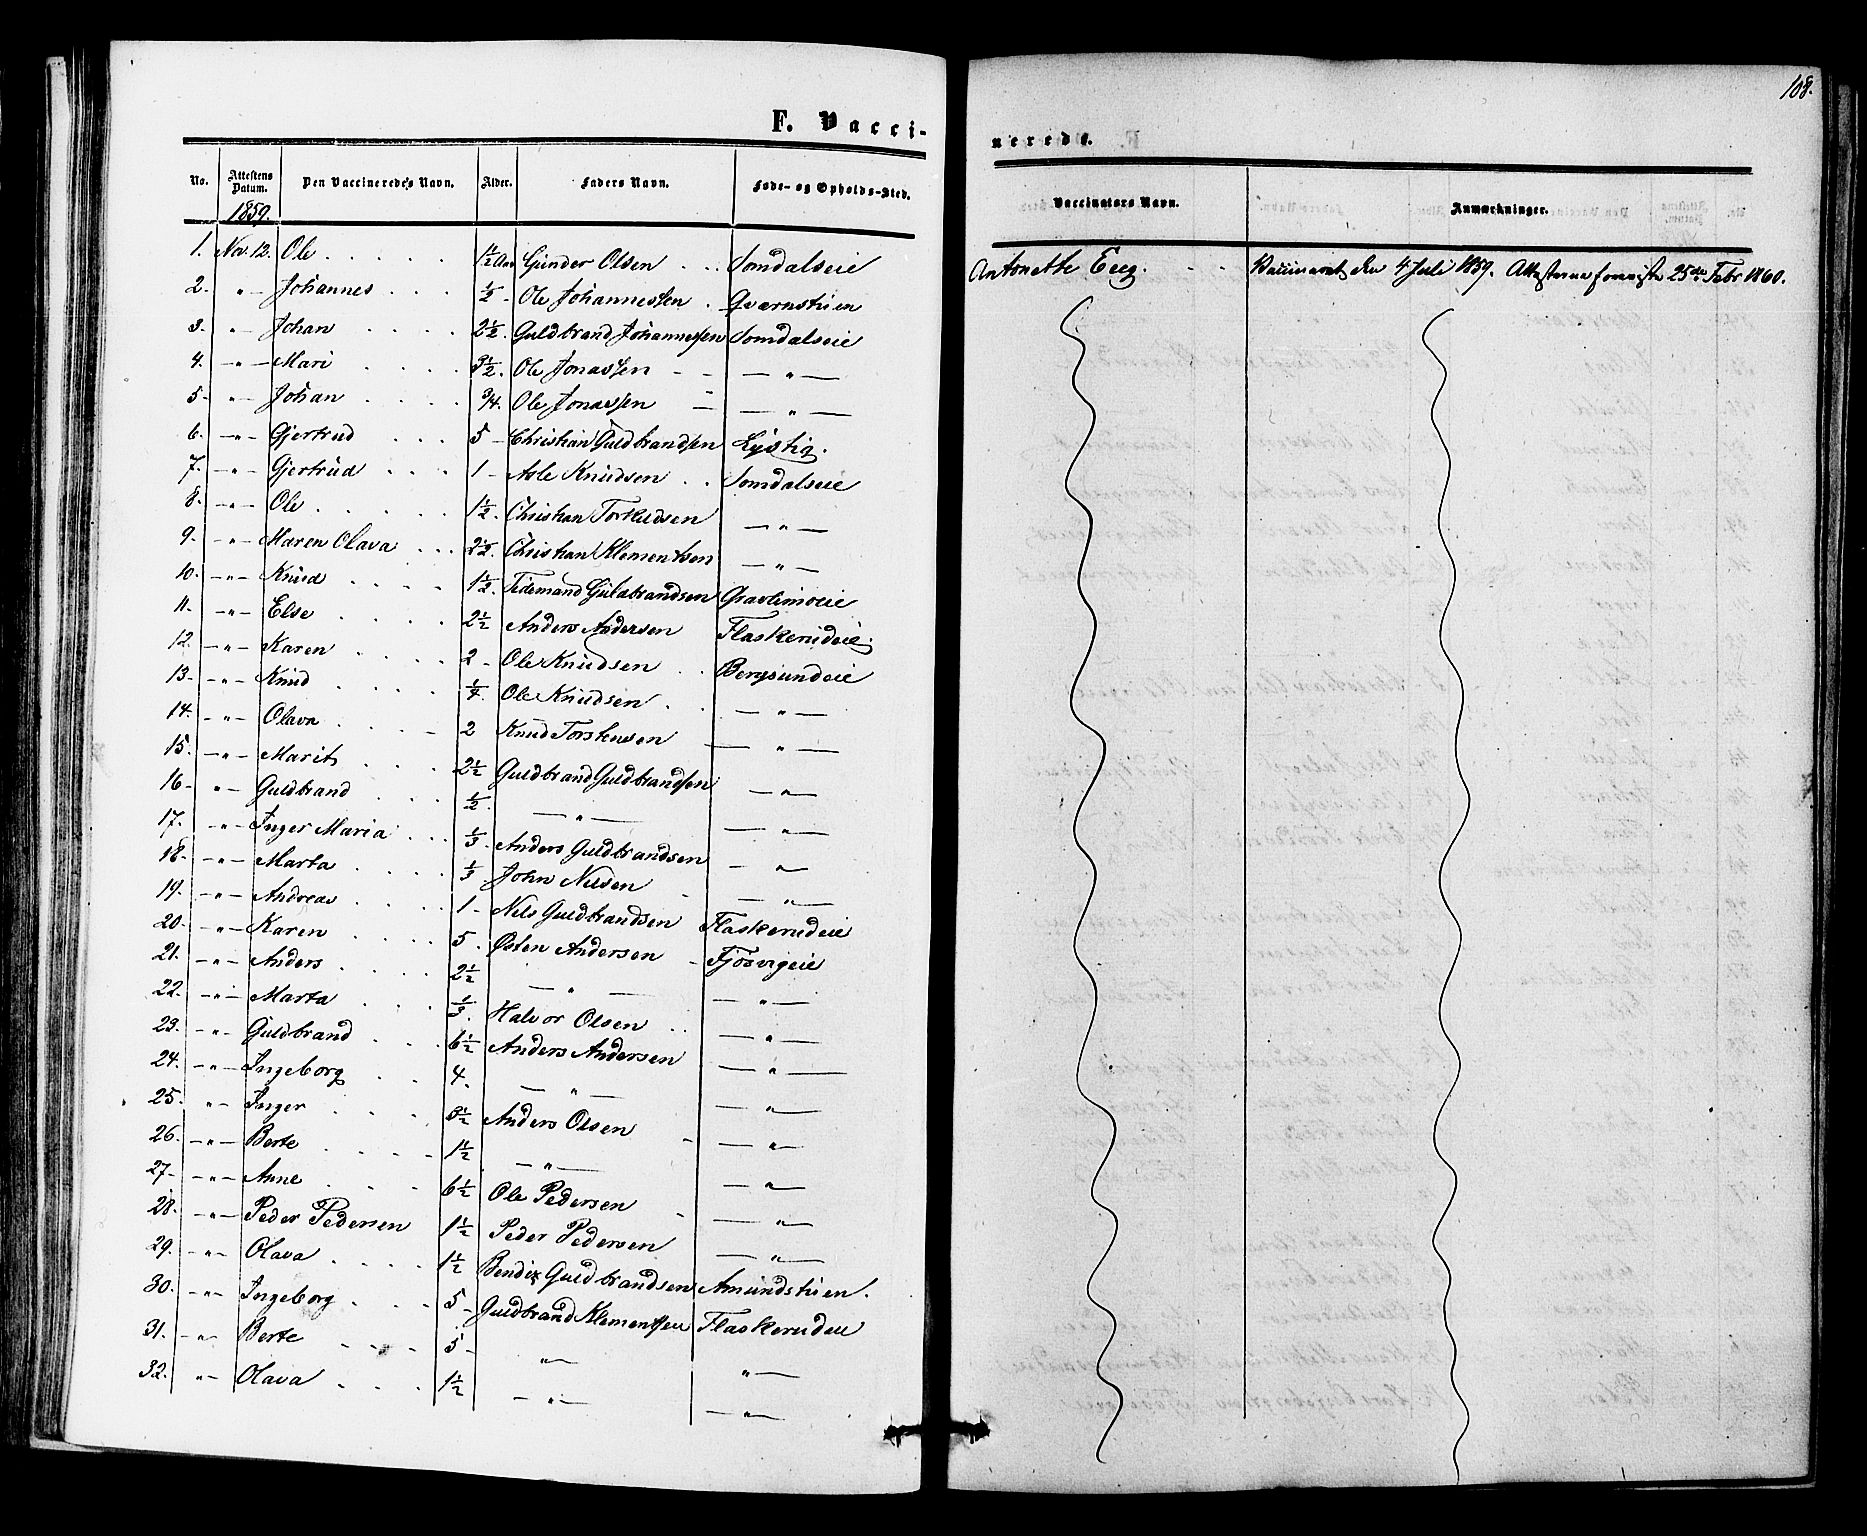 108.
F. Vacci-
nerede.
No. Attestens Datum. Den Vaccineredes Navn. Alder. Faders Navn. Føde- og Opholds-Sted. Vaccinators Navn. Anmærkninger.
1859.
1. Nov. 12. Ole 1½ Aar Gunder Olsen Somdalseie Antonette Eeg. Vaccineret den 4 Juli 1859. Attesterne foreviste 25de Febr 1860.
2. — " — Johannes ½ - Ole Johannessen Qværnstuen
3. — " — Johan 2½. Guldbrand Johannessen Somdalseie
4. — " — Mari 3½. Ole Jonassen — " —
5. — " — Johan ¾. Ole Jonassen — " —
6. — " — Gjertrud 5 - Christian Guldbrandsen Lystig.
7. — " — Gjertrud 1 - Asle Knudsen Somdalseie
8. — " — Ole 1½. Christian Torkildsen — " —
9. — " — Maren Olava 2½. Christian Klementsen — " —
10. — " — Knud 1½. Tidemand Guldbrandsen
11. — " — Else 2½ Anders Andersen Flaskerudeie.
12. — " — Karen 2 - Ole Knudsen Bergsundeie
13. — " — Knud ¼. Ole Knudsen — " —
14. — " — Olava 2 Knud — " —
15. — " — Marit 2½ Guldbrand Guldbrandsen — " —
16. — " — Guldbrand ½. — " — — " —
17. — " — Inger Maria ⅓. Anders Guldbrandsen — " —
18. — " — Marta ⅓ John Nilsen — " —
19. — " — Andreas 1 - Nels Guldbrandsen Flaskerudeie
20. — " — Karen 5. Østen Andersen Fjøsvigeie
21. — " — Anders 2½ — " — — " —
22. — " — Marta ⅓. Halvor Olsen — " —
23. — " — Guldbrand 6½ Anders Andersen — " —
24. — " — Ingeborg 4. — " — — " —
25. — " — Inger 3½ Anders Olsen — " —
26. — " — Berte 1½ — " — — " —
27. — " — Anne 6½ Ole Pedersen — " —
28. — " — Peder Pedersen 1½ Peder Pedersen — " —
29. — " — Olava 1½ Bendix Guldbrandsen Amundstuen.
30. — " — Ingeborg 5 - Guldbrand Klementsen Flaskerudeie
31. — " — Berte 5 - — " — — " —
32. — " — Olava 1½ — " — — " —